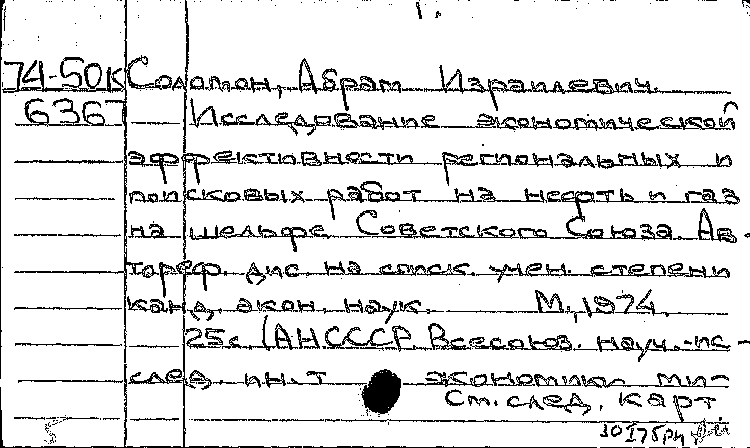 1.
74-50к Соломон, Абрам Израилевич.
6367 Исследование экономической
эффективности региональных и
поисковых работ на нефть и газ
на шельфе Советского Союза. Ав-
тореф. дис. на соиск. учен. степени
канд. экон. наук. М., 1974.
25с. (АН СССР. Всесоюз. науч.-ис-
след. ин-т экономики ми-
См. след. карт
30 I 75